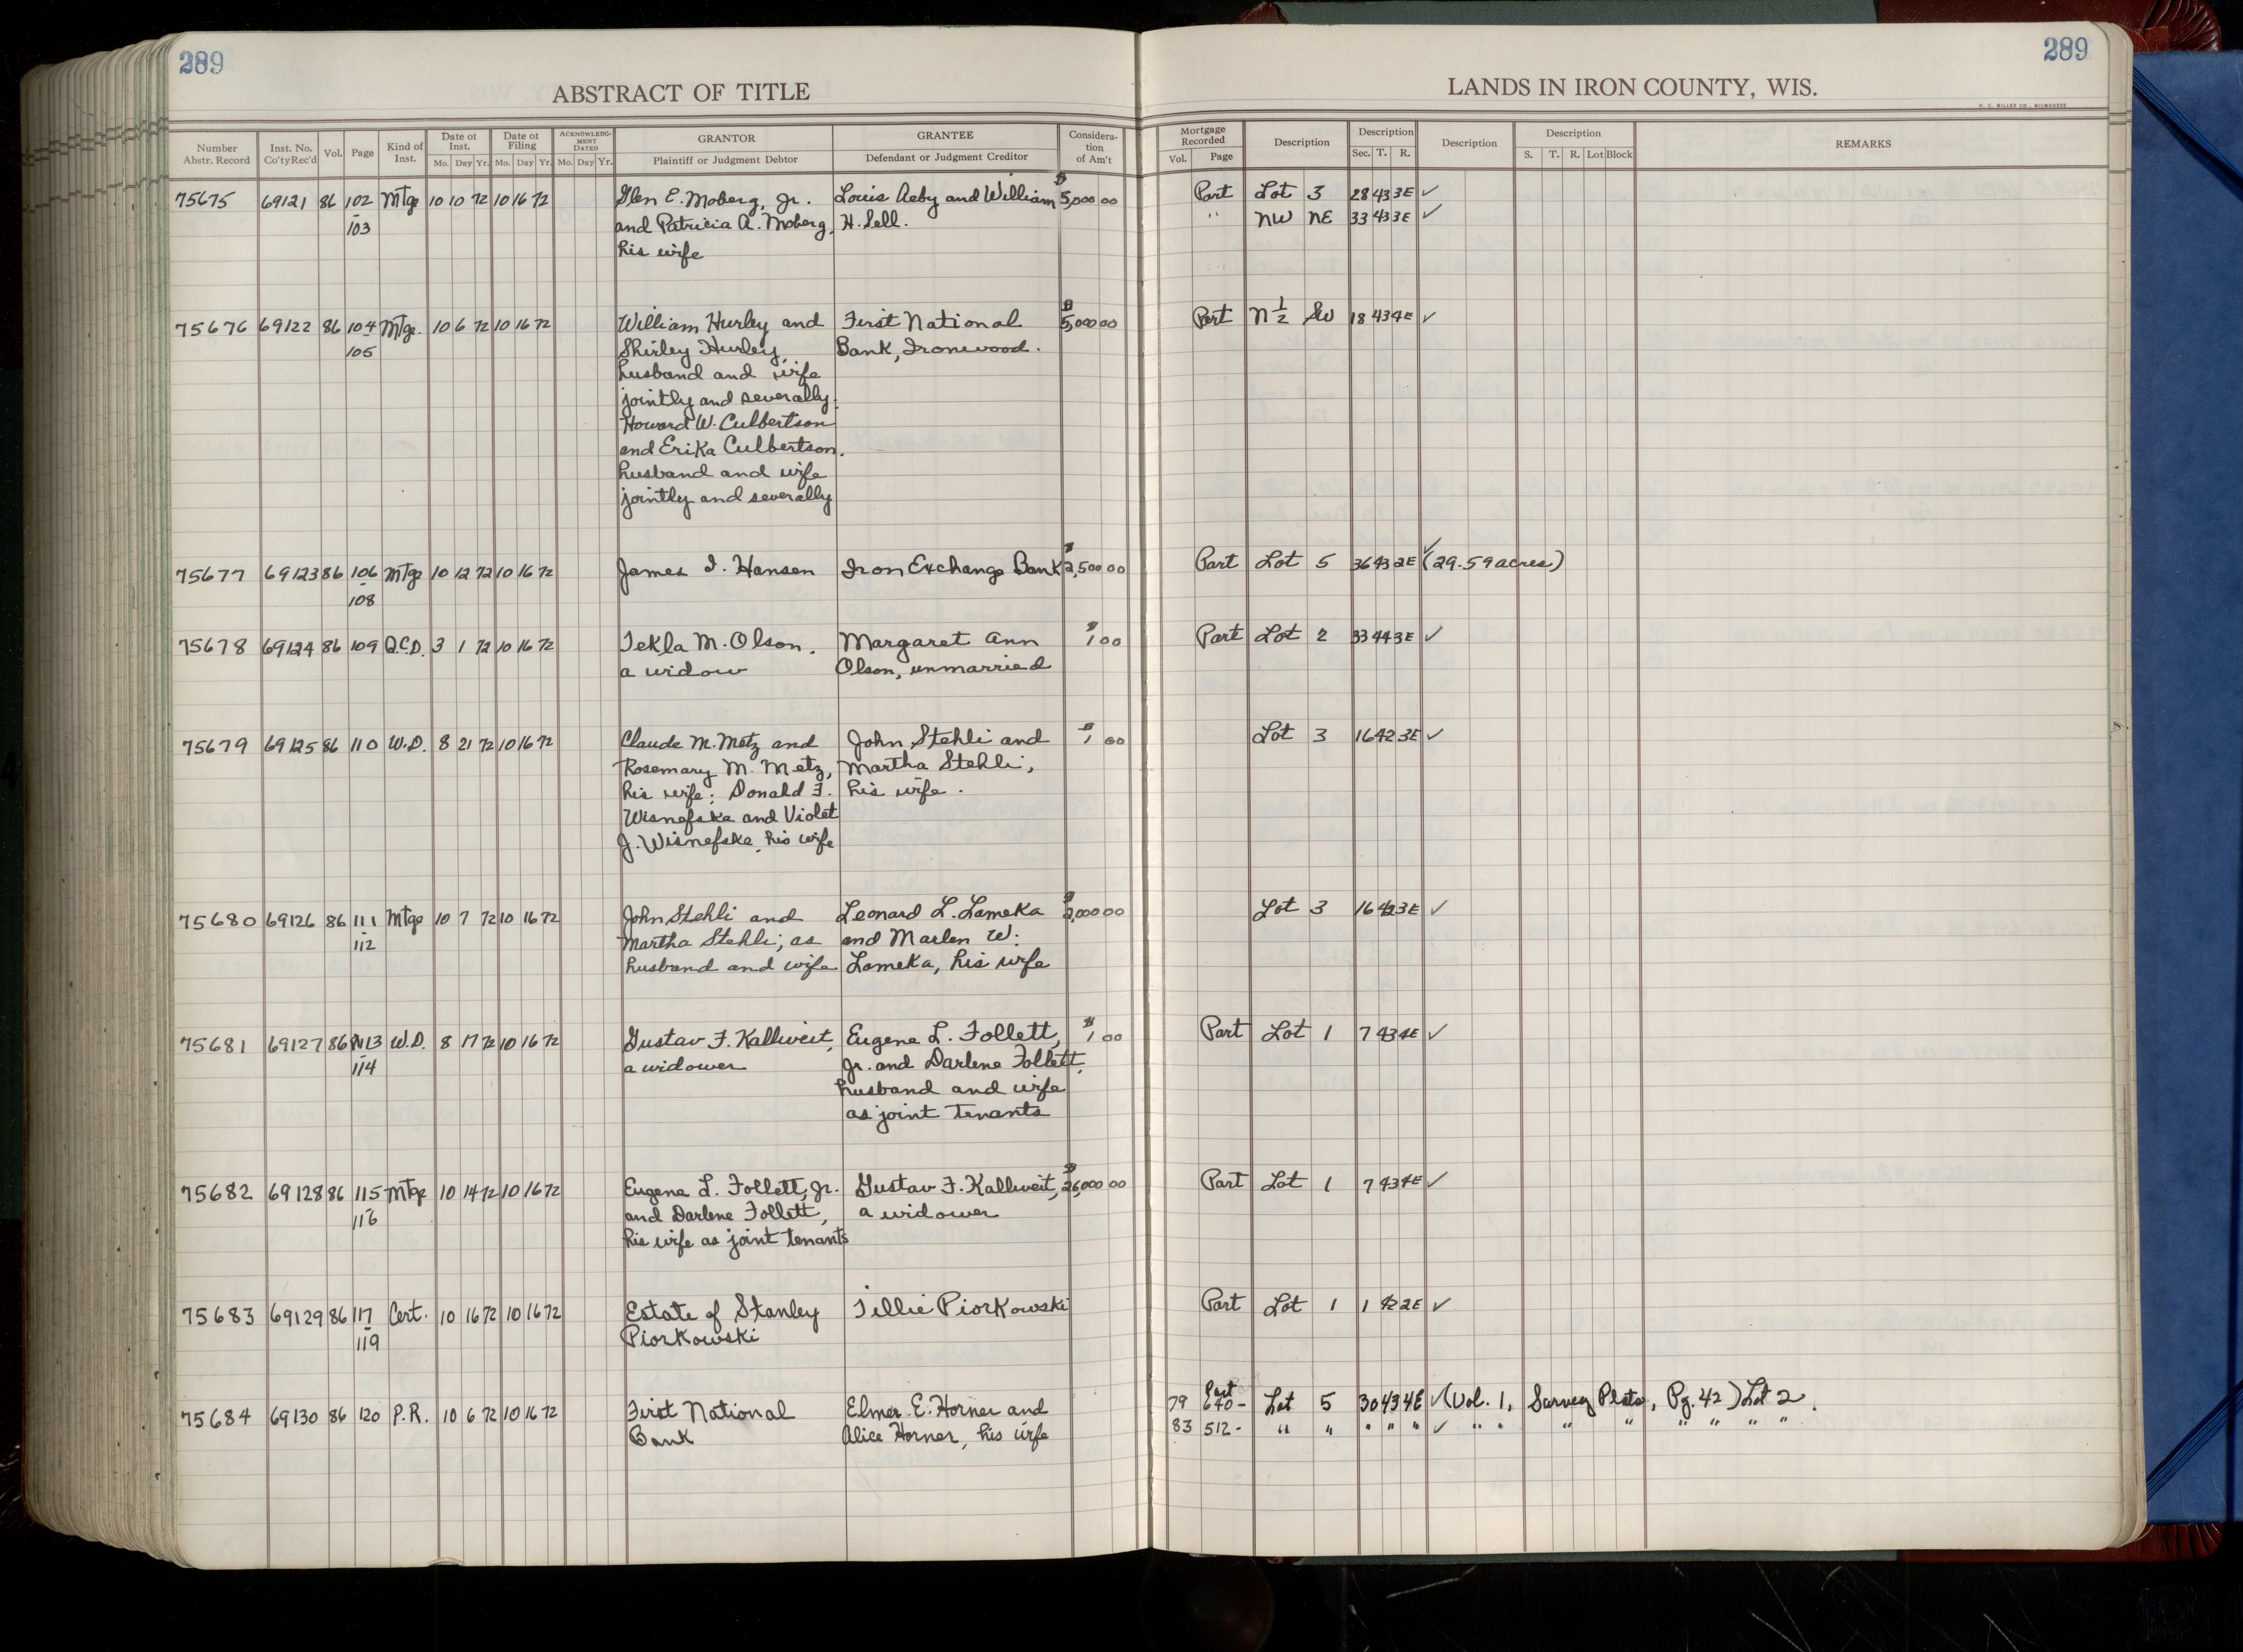 289
289
ABSTRACT OF TITLE
LANDS IN IRON COUNTY, WIS.
H. C. MILLER CO., MILWAUKEE
Number Abstr. Record Inst. No. Co'ty Rec'd Vol. Page Kind of Inst. Date of Inst. Mo. Day Yr. Date of Filing Mo. Day Yr. ACKNOWLEDGMENT DATED Mo. Day Yr. GRANTOR Plaintiff or Judgment Debtor GRANTEE Defendant or Judgment Creditor Consideration of Am't Mortgage Recorded Vol. Page Description Description Sec. T. R. Description Description S. T. R. Lot Block REMARKS
75675 69121 86 102 Mtge 10 10 72 10 16 72 Glen E. Moberg, Jr. Louis Aeby and William $5,000 00 Part Lot 3 28 43 3E ✓
- 103 and Patricia A. Moberg, H. Sell. " NW NE 33 43 3E ✓
his wife
75676 69122 86 104 Mtge. 10 6 72 10 16 72 William Hurley and First National $5,000 00 Part N 1/2 SW 18 43 4E ✓
- 105 Shirley Hurley, Bank, Ironwood.
husband and wife
jointly and severally.
Howard W. Culbertson
and Erika Culbertson.
husband and wife
jointly and severally
75677 69123 86 106 Mtge 10 12 72 10 16 72 James I. Hansen Iron Exchange Bank $2,500 00 Part Lot 5 36 43 2E ✓ (29.59 acres)
- 108
75678 69124 86 109 Q.C.D. 3 1 72 10 16 72 Tekla M. Olson, Margaret Ann $1 00 Part Lot 2 33 44 3E ✓
a widow Olson, unmarried
75679 69125 86 110 W.D. 8 21 72 10 16 72 Claude M. Metz and John Stehli and $1 00 Lot 3 16 42 3E ✓
Rosemary M. Metz, Martha Stehli,
his wife; Donald F. his wife.
Wisnefske and Violet
J. Wisnefske, his wife
75680 69126 86 111 Mtge 10 7 72 10 16 72 John Stehli and Leonard L. Lameka 00 Lot 3 16 42 3E ✓
- 112 Martha Stehli, as and Marlen W.
husband and wife Lameka, his wife
75681 69127 86 113 W.D. 8 17 72 10 16 72 Gustav F. Kallweit, Eugene L. Follett, $1 00 Part Lot 1 7 43 4E ✓
114 a widower Jr. and Darlene Follett,
husband and wife
as joint tenants
75682 69128 86 115 Mtge 10 14 72 10 16 72 Eugene L. Follett, Jr. Gustav F. Kallweit, $26,000 00 Part Lot 1 7 43 4E ✓
- 116 and Darlene Follett, a widower
his wife as joint tenants
75683 69129 86 117 Cert. 10 16 72 10 16 72 Estate of Stanley Tillie Piorkowski Part Lot 1 1 42 2E ✓
- 119 Piorkowski
75684 69130 86 120 P.R. 10 6 72 10 16 72 First National Elmer E. Horner and 79 640- Part Lot 5 30 43 4E ✓ (Vol. 1, Survey Plats, Pg. 42) Lot 2.
Bank Alice Horner, his wife 83 512- " " " " " ✓ " " " " " " " "